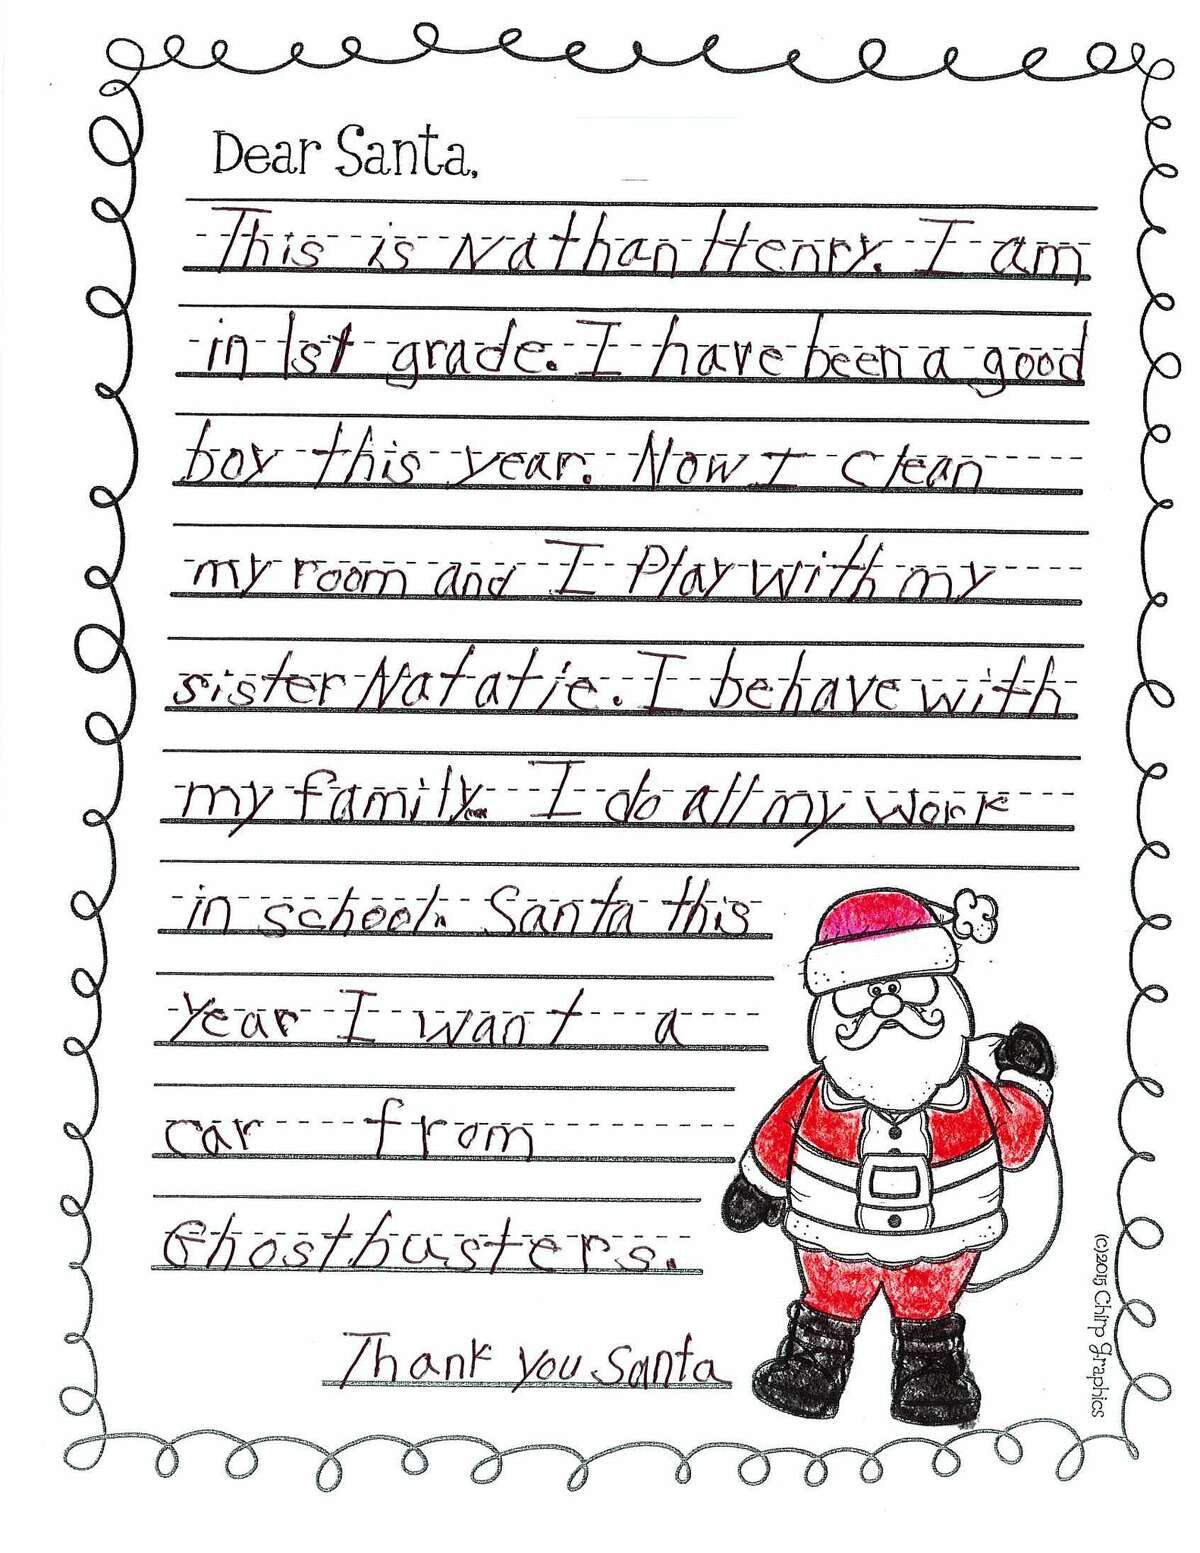 Dear Santa,
This is Nathan Henry. I am
in 1st grade. I have been a good
boy this year. Now I clean
my room and I Play with my
sister Natatie. I behave with
my family. I do all my work
in school. Santa this
year I want a
car from
Ghostbusters.
Thank you Santa
(c)2015 Chirp Graphics